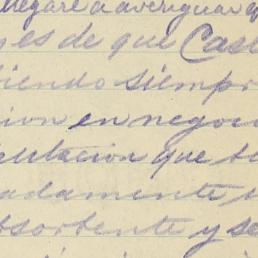 llegaré a averiguar q
es de que Cast
iendo siempr
cion en negoc
putacion que t
adamente
bsorbente y se